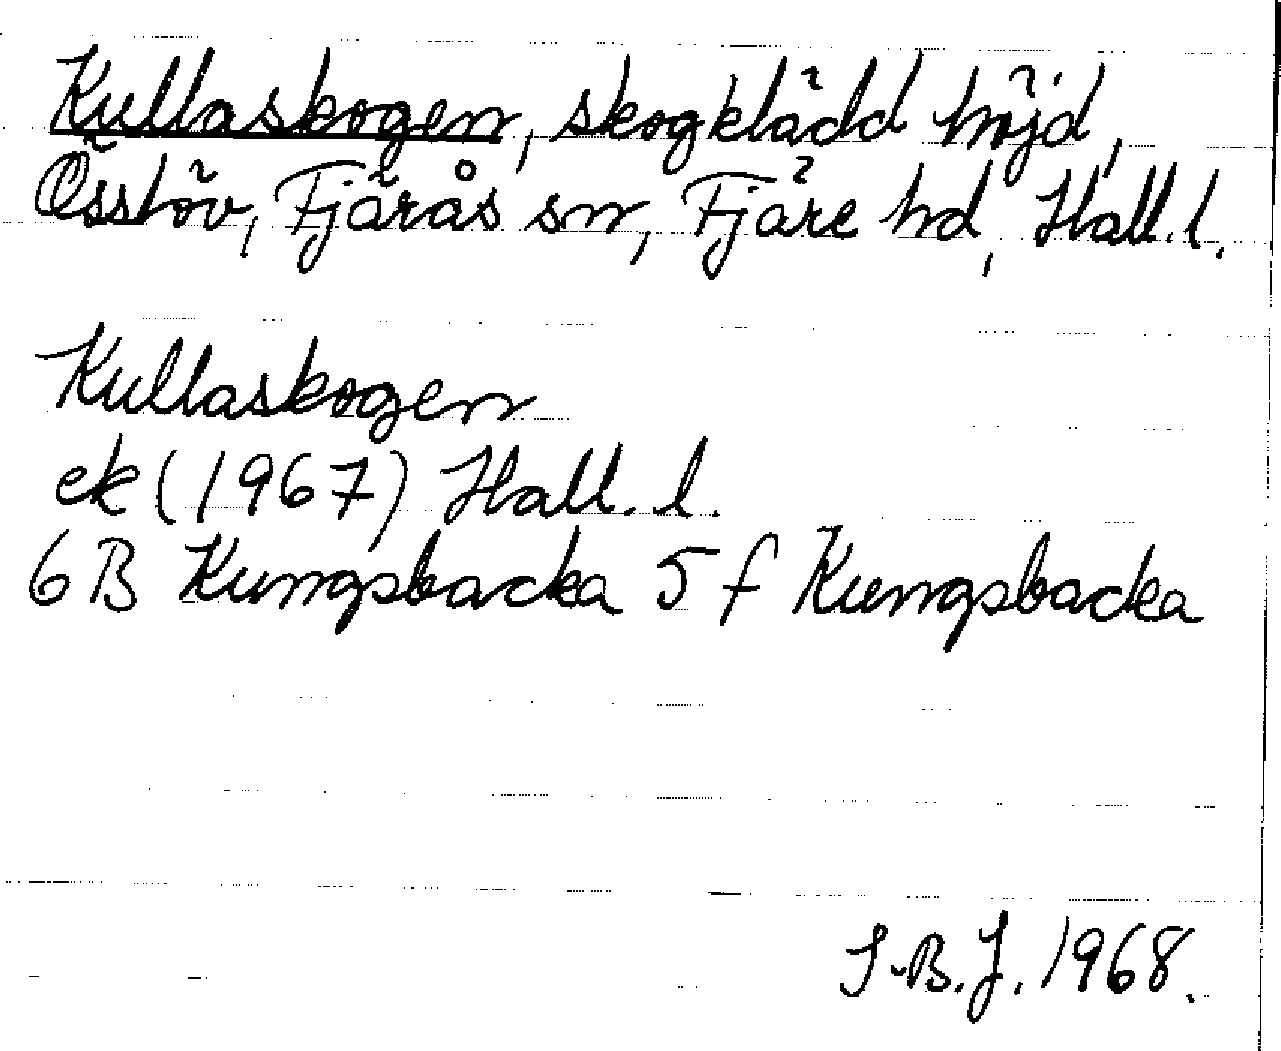 Kullaskogen, skogklädd höjd,
Össlöv, Fjärås sn, Fjäre hd, Hall. l.
Kullaskogen
ek (1967) Hall. l.
6 B Kungsbacka 5 f Kungsbacka
I-B.J. 1968.